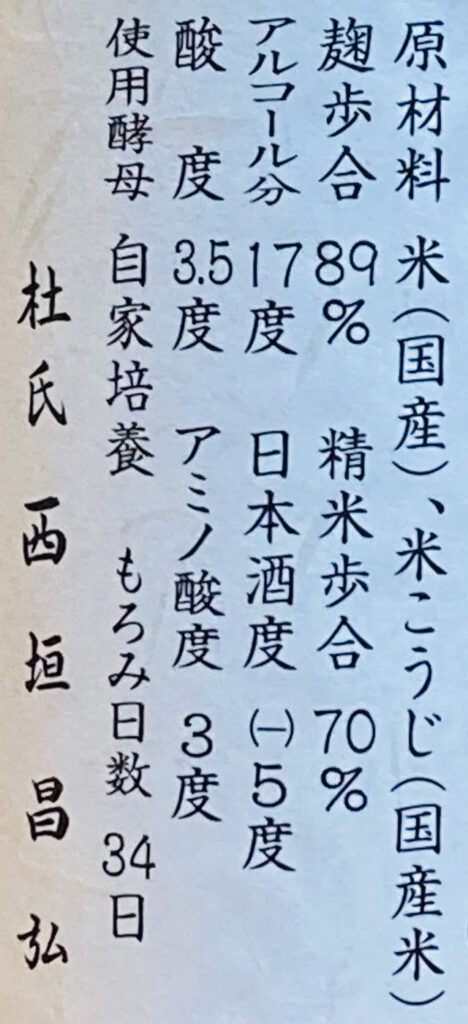 原材料 米(国産)、米こうじ(国産米)
麹歩合 89% 精米歩合 70%
アルコール分 17度 日本酒度 (一)5度
酸度 3.5度 アミノ酸度 3度
使用酵母 自家培養 もろみ日数 34日
杜氏 西垣昌弘